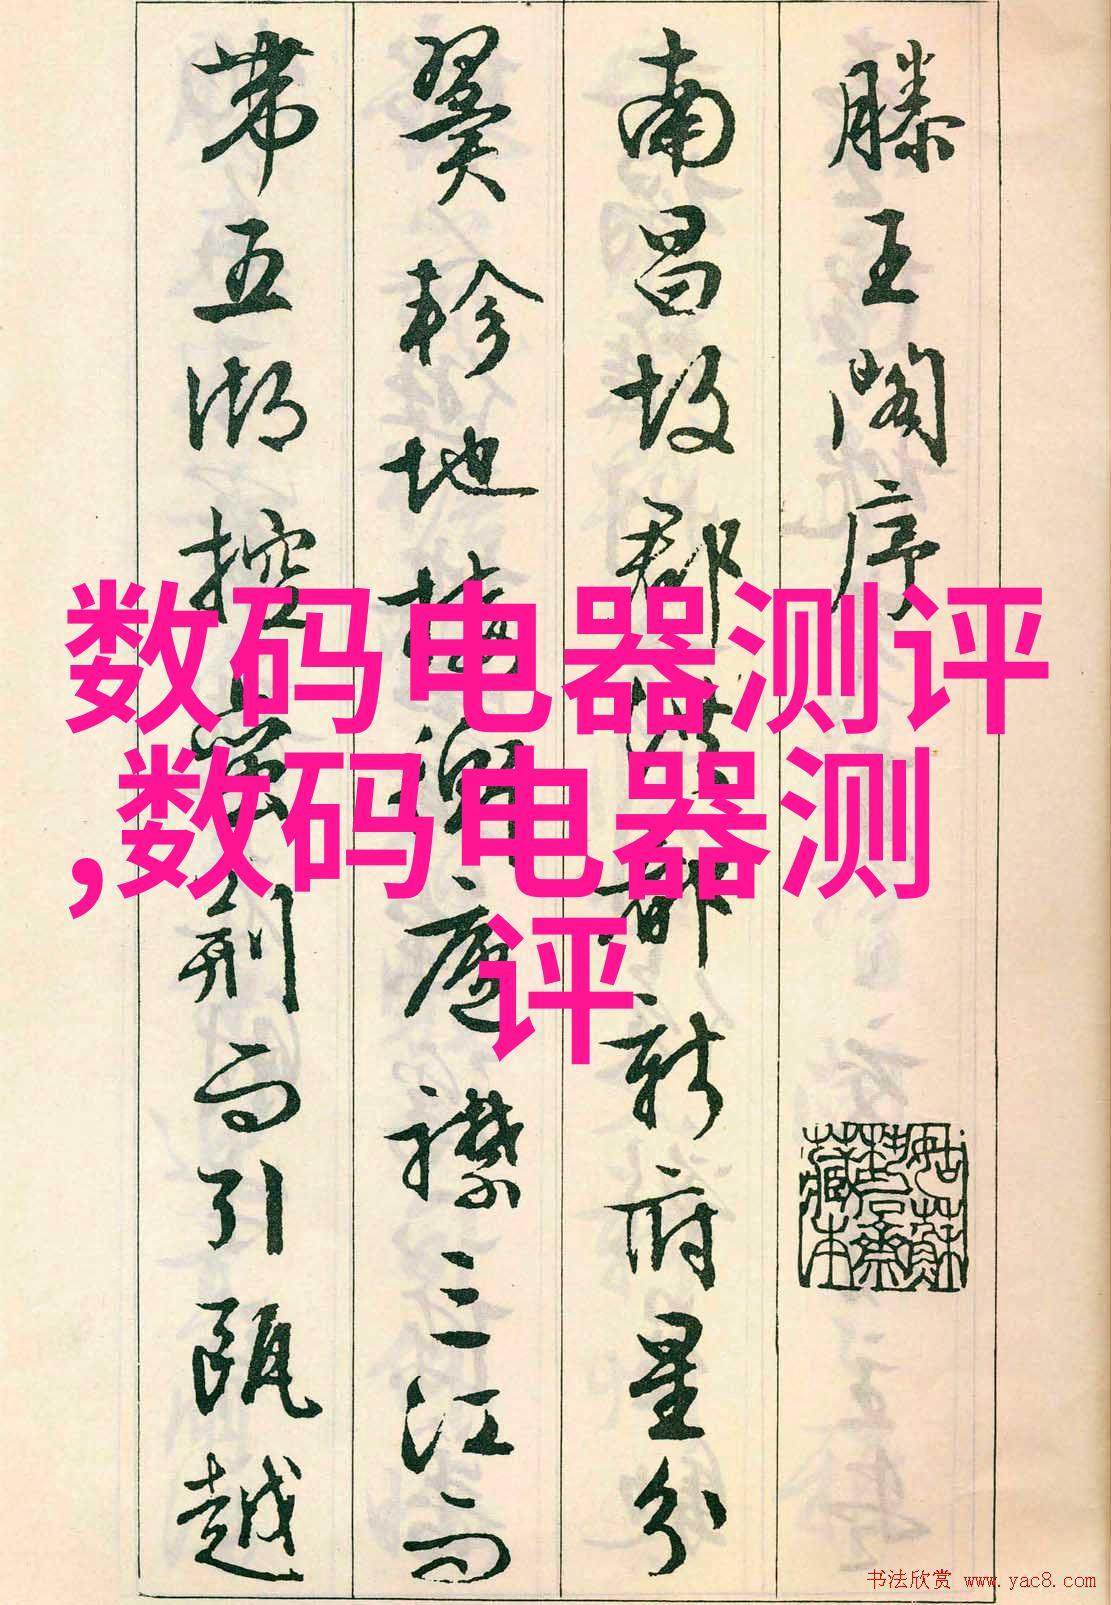 滕王阁序
南昌故郡洪都新府星分
翼轸地接衡庐襟三江而
带五湖控蛮荆而引瓯越
数码电器测评
,数码电器测
评
书法欣赏 www.yac8.com